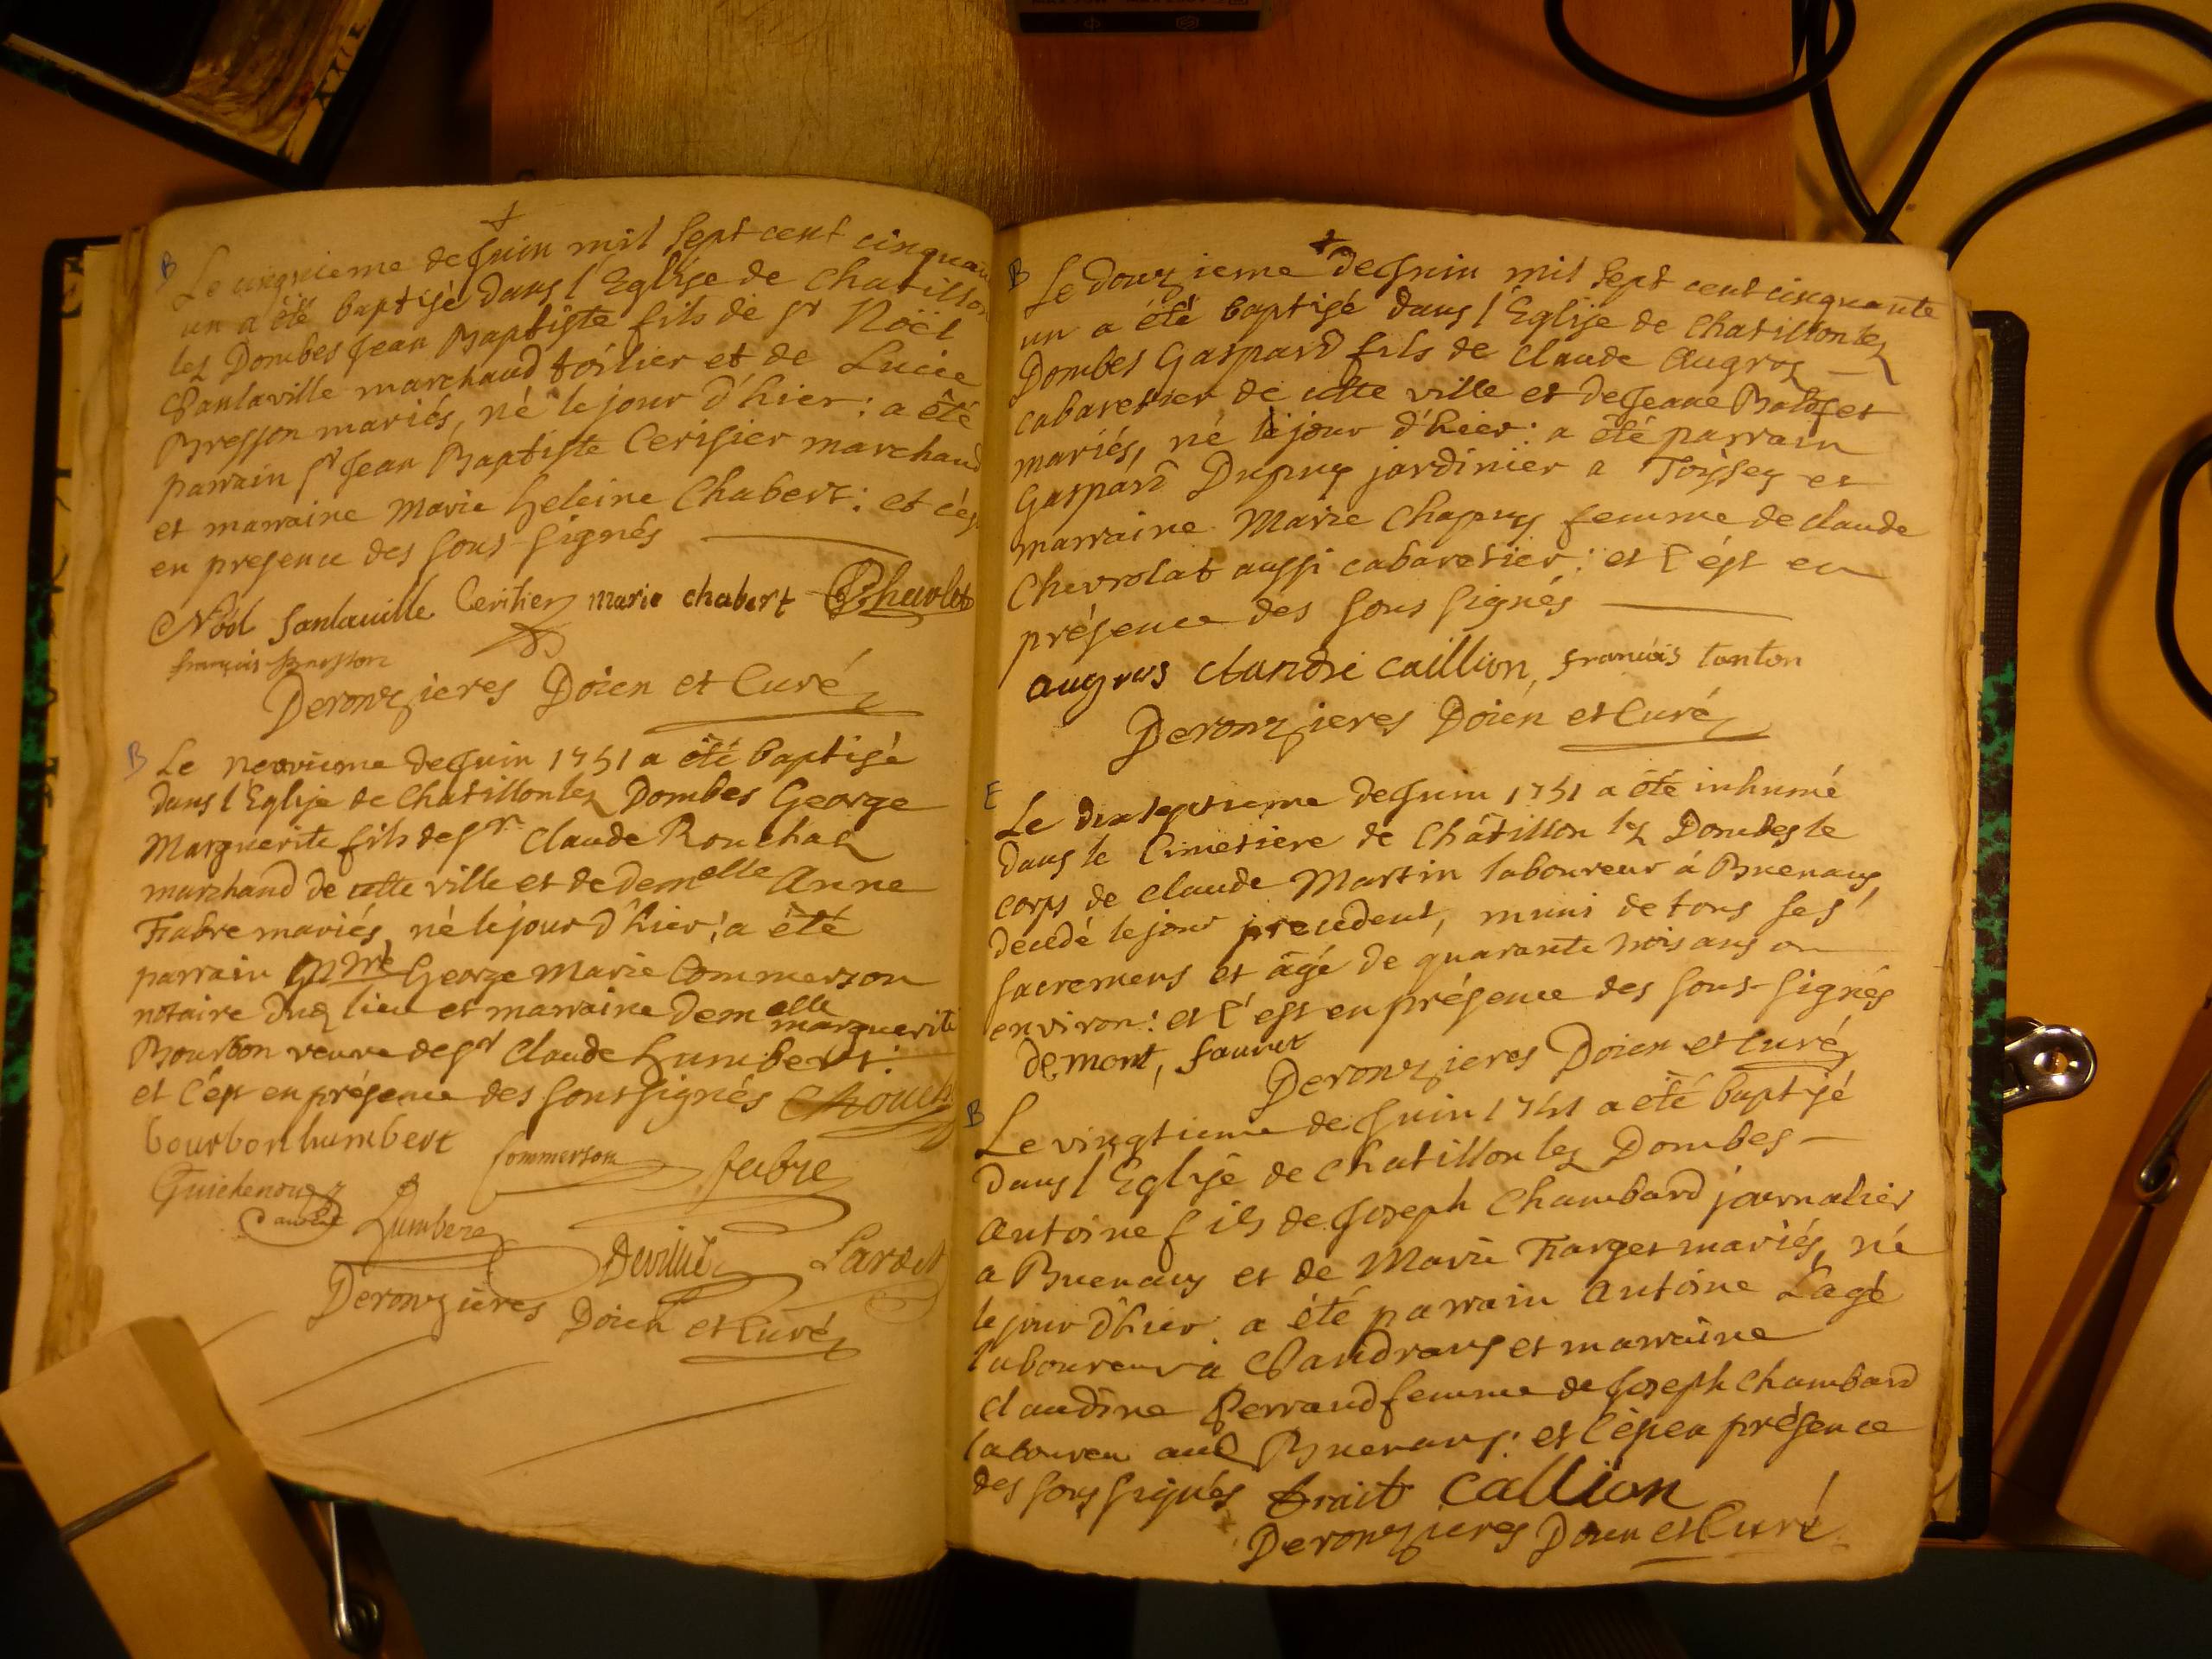 B Le cinquieme de Juin mil sept cent cinquan
un a été baptisé dans l'Eglise de Chatillon
lez Dombes Jean Baptiste fils de Sr Noël
Sanlaville marchand toilier et de Lucie
Bresson mariés, né le jour d'hier : a été
parrain Sr Jean Baptiste Cerisier marchand
et marraine Marie heleine Chabert : et c'ést
en presence des sous signés
Noel Sanlaville Cerisier marie chabert
françois bresson
Deronzieres Doien et Curé
B Le neuvieme de Juin 1751 a été baptisé
dans l'Eglise de Chatillon lez Dombes George
Marguerite fils de Sr Claude Rouchas
marchand de cette ville et de demelle Anne
Fiabre mariés, né le jour d'hier : a été
parrain George Marie Commerson
notaire dud lieu et marraine demelle marguerite
Bourbon veuve de Sr Claude humbert :
et c'est en présence des sous signés
bourbon humbert Commerson fabre
Guichenon humbert
Deville Lardet
Deronzieres Doien et Curé
B Le douzieme de Juin mil sept cent cinquante
un a été baptisé dans l'Eglise de Chatillon lez
Dombes Gaspard fils de Claude Augros
cabaretier de cette ville et de Jeane
mariés, né le jour d'hier : a été parrain
Gaspard Dupuy jardinier a Toissey et
marraine Marie Chapuy femme de Claude
Chevrolat aussi cabaretier : et c'ést en
présence des sous signés
augros claudre caillion, francois tonton
Deronzieres Doien et Curé
E Le dixseptieme de Juin 1751 a été inhumé
dans le Cimetiere de Châtillon lez Dombes le
corps de Claude Martin laboureur à Buenans
décédé le jour précédent, muni de tous ses
sacremens et âgé de quarante trois ans ou
environ : et c'est en présence des sous-signés
demont, fauret
Deronzieres Doien et Curé
B Le vingtieme de Juin 1751 a été baptisé
dans l'Eglise de Chatillon lez Dombes
Antoine fils de Joseph Chambard journalier
a Buenans et de Marie Farget mariés, né
le jour d'hier. a été parrain Antoine Lagé
laboureur a Sandrans et marraine
Claudine Perraud femme de Joseph Chambard
laboureu aud Buenans : et c'ést en présence
des sous signés trait Callion
Deronzieres Doien et Curé